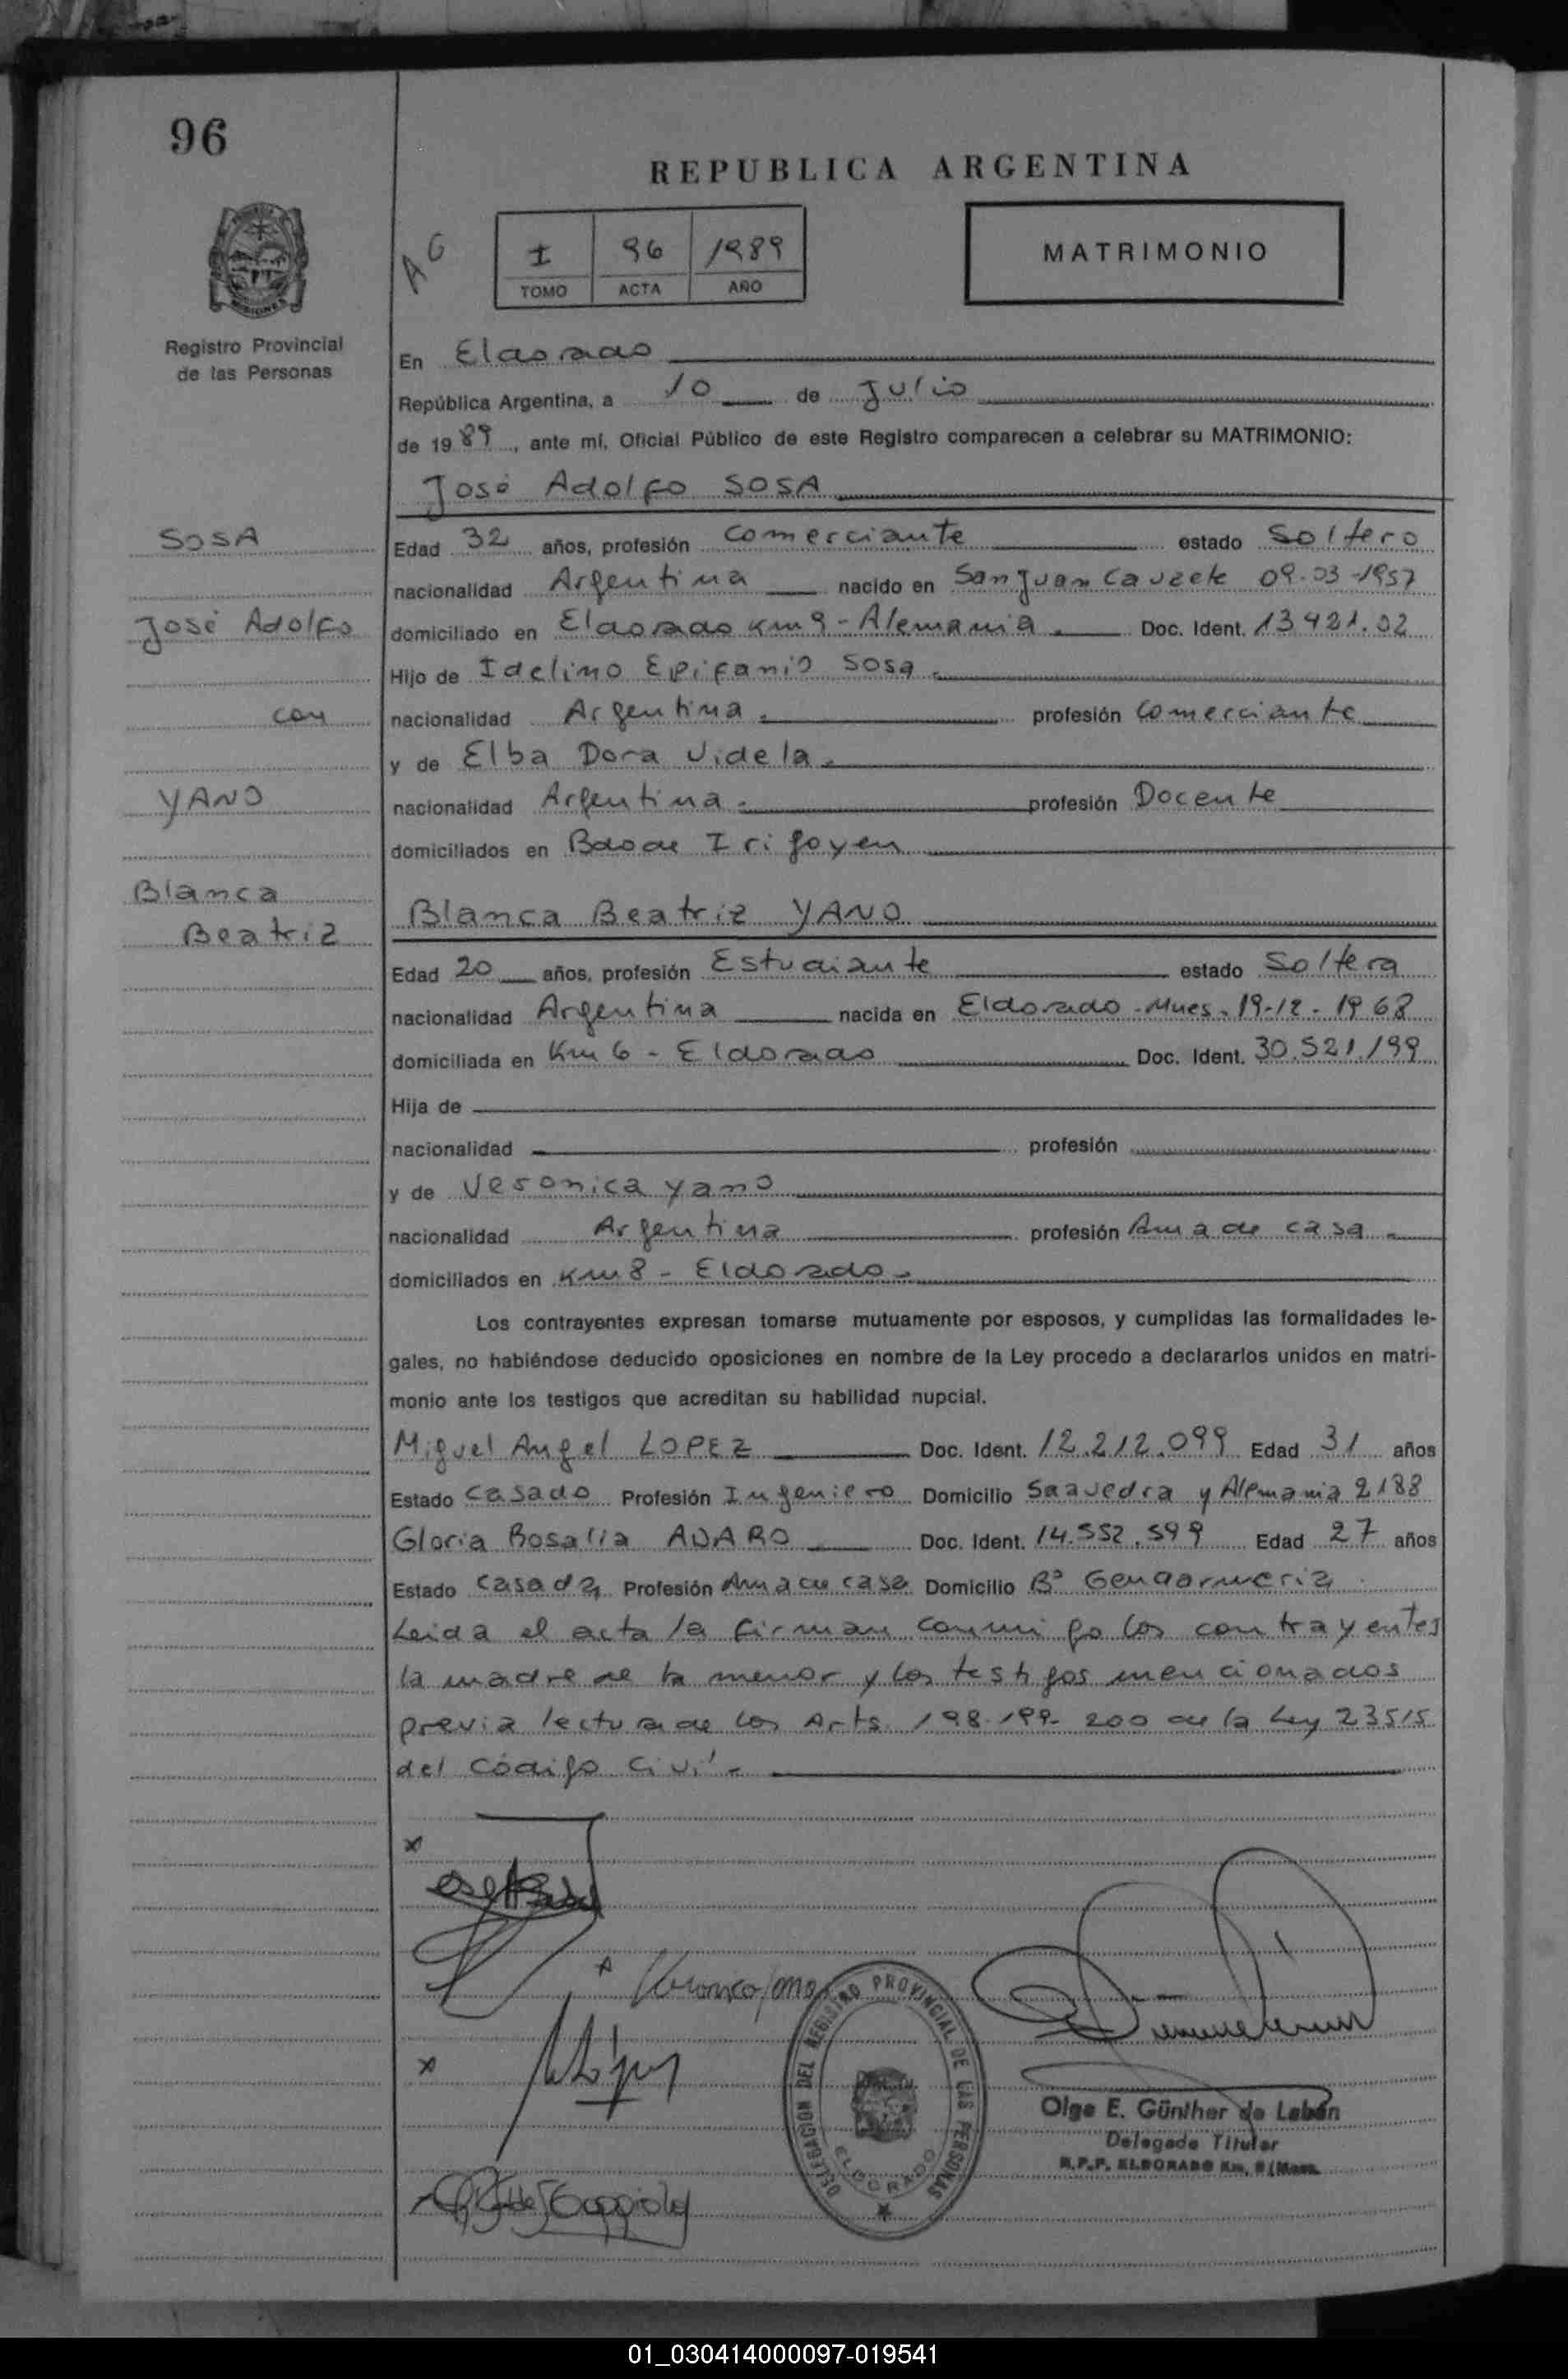 96
REPUBLICA ARGENTINA
AG
I 96 1989
TOMO ACTA AÑO
MATRIMONIO
Registro Provincial
de las Personas
En Eldorado
República Argentina, a 10 de Julio
de 1989, ante mí, Oficial Público de este Registro comparecen a celebrar su MATRIMONIO:
José Adolfo SOSA
SOSA
José Adolfo
con
YANO
Blanca
Beatriz
Edad 32 años, profesión comerciante estado soltero
nacionalidad Argentina nacido en San Juan 09-03-1957
domiciliado en Eldorado Km 9 - Alemania. Doc. Ident. 13.421.02
Hijo de Idelino Epifanio Sosa.
nacionalidad Argentina. profesión comerciante
y de Elba Dora Videla.
nacionalidad Argentina. profesión Docente
domiciliados en Bdo de Irigoyen
Blanca Beatriz YANO
Edad 20 años, profesión Estudiante estado Soltera
nacionalidad Argentina nacida en Eldorado - Mnes. 19-12-1968
domiciliada en Km 6 - Eldorado Doc. Ident. 30.521.199
Hija de
nacionalidad profesión
y de Veronica Yano
nacionalidad Argentina profesión Ama de casa
domiciliados en Km 8 - Eldorado.
Los contrayentes expresan tomarse mutuamente por esposos, y cumplidas las formalidades le-
gales, no habiéndose deducido oposiciones en nombre de la Ley procedo a declararlos unidos en matri-
monio ante los testigos que acreditan su habilidad nupcial.
Miguel Angel LOPEZ Doc. Ident. 12.212.099 Edad 31 años
Estado Casado Profesión Ingeniero Domicilio Saavedra y Alemania 2188
Gloria Rosalia ADARO Doc. Ident. 14.552.599 Edad 27 años
Estado Casada Profesión Ama de casa Domicilio Bº Gendarmeria
Leida el acta la firman conmigo los contrayentes
la madre de la menor y los testigos mencionados
previa lectura de los Arts. 198-199-200 de la Ley 23515
del Código Civil.
Veronica Yano
DELEGACION DEL REGISTRO PROVINCIAL DE LAS PERSONAS
ELDORADO
Olga E. Günther de Labán
Delegada Titular
R.P.P. ELDORADO Km.
01_030414000097-019541